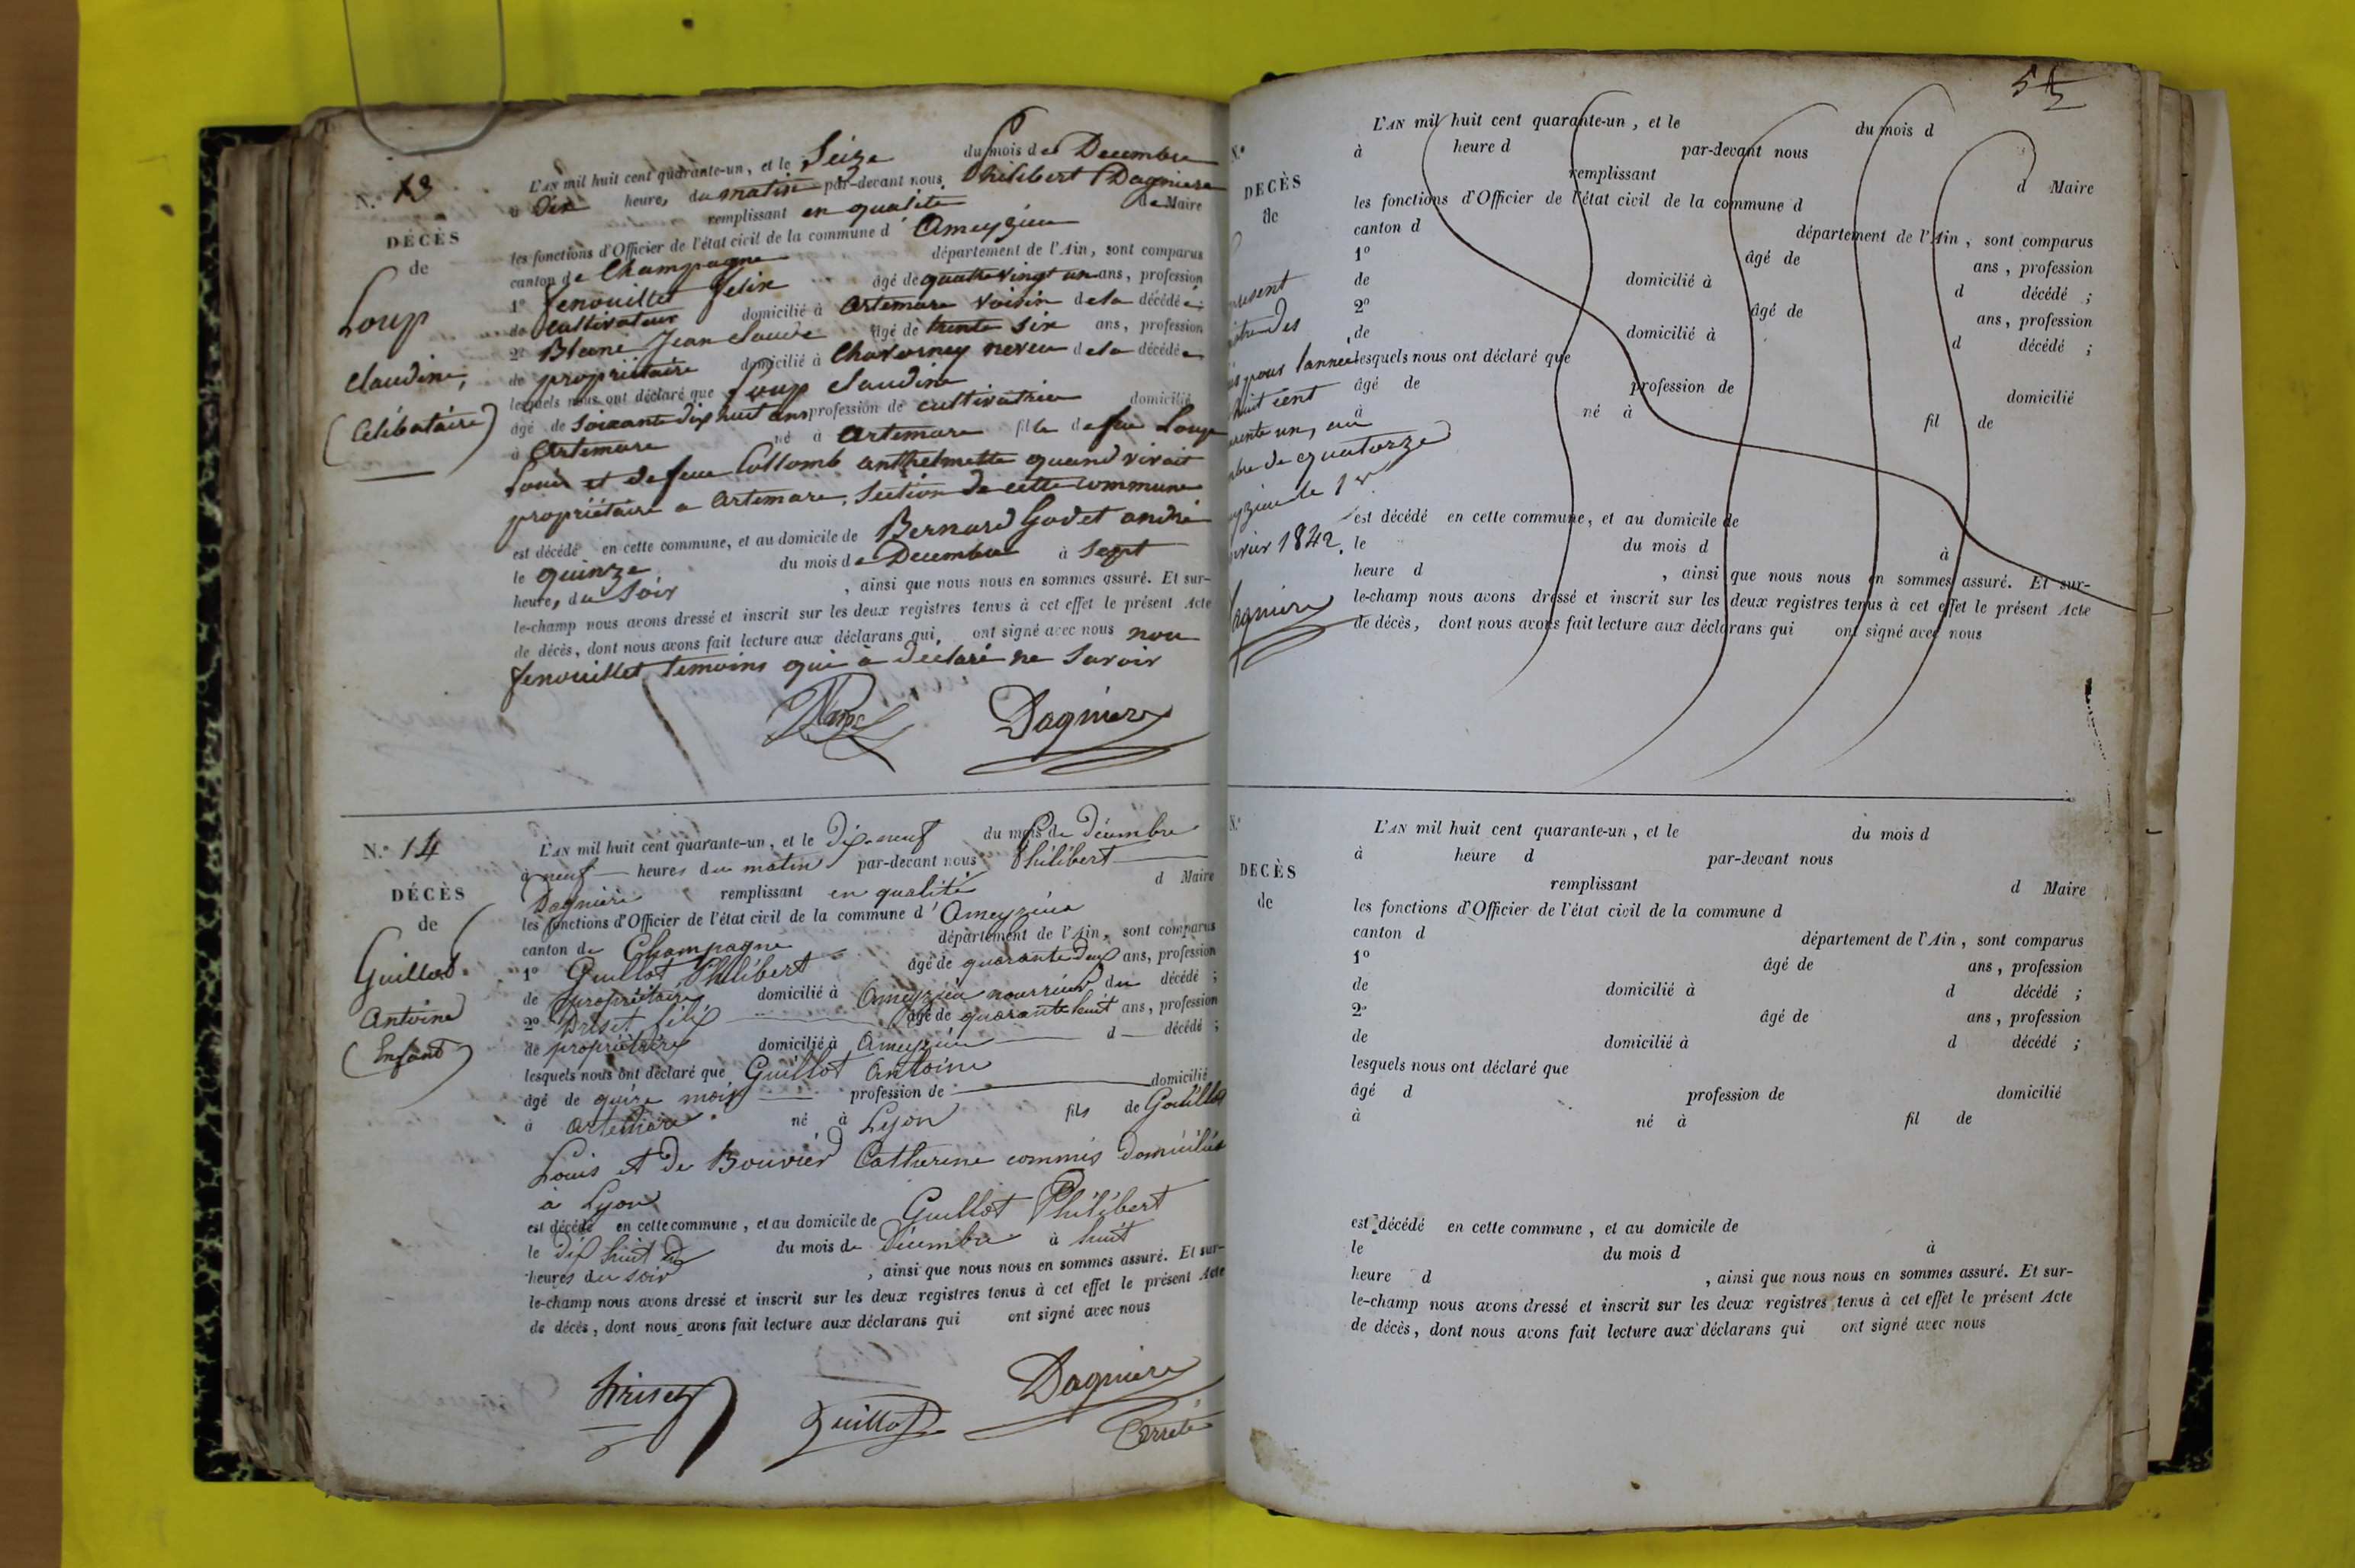 N.° 13
DÉCÈS
de
Loup
Claudine,
(Célibataire)
L'AN mil huit cent quarante-un, et le Seize du mois de Decembre
à dix heures du matin par-devant nous Philibert Dagniere
remplissant en qualité de Maire
les fonctions d'Officier de l'état civil de la commune d'Ameyzieu
canton de Champagne département de l'Ain, sont comparus
1° fenouillet felix âgé de quatre vingt un ans, profession
de Cultivateur domicilié à Artemare voisin de la décédée;
2° Blanc Jean Claude âgé de trente six ans, profession
de propriétaire domicilié à Chavornay neveu de la décédée
lesquels nous ont déclaré que Loup Claudine
âgé de soixante dix huit ans profession de cultivatrice domicilié
à Artemare né à Artemare fille de feu Loup
Louis et de feue Collomb anthelmette quand vivait
propriétaire a Artemare, Section de cette commune
est décédé en cette commune, et au domicile de Bernard Godet andré
le quinze du mois de Decembre à Sept
heures du Soir, ainsi que nous nous en sommes assuré. Et sur-
le-champ nous avons dressé et inscrit sur les deux registres tenus à cet effet le présent Acte
de décès, dont nous avons fait lecture aux déclarans qui, ont signé avec nous non
fenouillet temoins qui à declaré ne Savoir
Blanc Dagniere
N.° 14
DÉCÈS
de
Guillot
Antoine
(Enfant)
L'AN mil huit cent quarante-un, et le Dix-neuf du mois de Décembre
à neuf heures du matin par-devant nous Philibert
Dagniere remplissant en qualité d Maire
les fonctions d'Officier de l'état civil de la commune d'Ameyzieu
canton de Champagne département de l'Ain, sont comparus
1° Guillot Philibert âgé de quarante deux ans, profession
de propriétaire domicilié à Ameyzieu nourricier du décédé ;
2° Briset félix âgé de quarante huit ans, profession
de propriétaire domicilié à Ameyzieu d décédé ;
lesquels nous ont déclaré que Guillot Antoine
âgé de quize mois profession de domicilié
à artemare né à Lyon fils de Guillot
Louis et de Bouvier Catherine commis domiciliés
à Lyon
est décédé en cette commune, et au domicile de Guillot Philibert
le dix huit du mois de Décembre à huit
heures du soir, ainsi que nous nous en sommes assuré. Et sur-
le-champ nous avons dressé et inscrit sur les deux registres tenus à cet effet le présent Acte
de décès, dont nous avons fait lecture aux déclarans qui ont signé avec nous
Briset Guillot Dagniere
N.°
DÉCÈS
de
présent
des
pour l'année
huit cent
quarante un, au
nombre de quatorze
1er
1842.
Dagniere
L'AN mil huit cent quarante-un, et le du mois d
à heure d par-devant nous
remplissant d Maire
les fonctions d'Officier de l'état civil de la commune d
canton d département de l'Ain, sont comparus
1° âgé de ans, profession
de domicilié à d décédé ;
2° âgé de ans, profession
de domicilié à d décédé ;
lesquels nous ont déclaré que
âgé de profession de domicilié
à né à fil de
est décédé en cette commune, et au domicile de
le du mois d à
heure d , ainsi que nous nous en sommes assuré. Et sur-
le-champ nous avons dressé et inscrit sur les deux registres tenus à cet effet le présent Acte
de décès, dont nous avons fait lecture aux déclarans qui ont signé avec nous
N.°
DÉCÈS
de
L'AN mil huit cent quarante-un, et le du mois d
à heure d par-devant nous
remplissant d Maire
les fonctions d'Officier de l'état civil de la commune d
canton d département de l'Ain, sont comparus
1° âgé de ans, profession
de domicilié à d décédé ;
2° âgé de ans, profession
de domicilié à d décédé ;
lesquels nous ont déclaré que
âgé d profession de domicilié
à né à fil de
est décédé en cette commune, et au domicile de
le du mois d à
heure d , ainsi que nous nous en sommes assuré. Et sur-
le-champ nous avons dressé et inscrit sur les deux registres tenus à cet effet le présent Acte
de décès, dont nous avons fait lecture aux déclarans qui ont signé avec nous